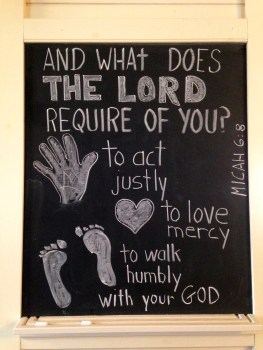 AND WHAT DOES
THE LORD
REQUIRE OF YOU?
to act
justly
to love
mercy
to walk
humbly
with your GOD
MICAH 6:8